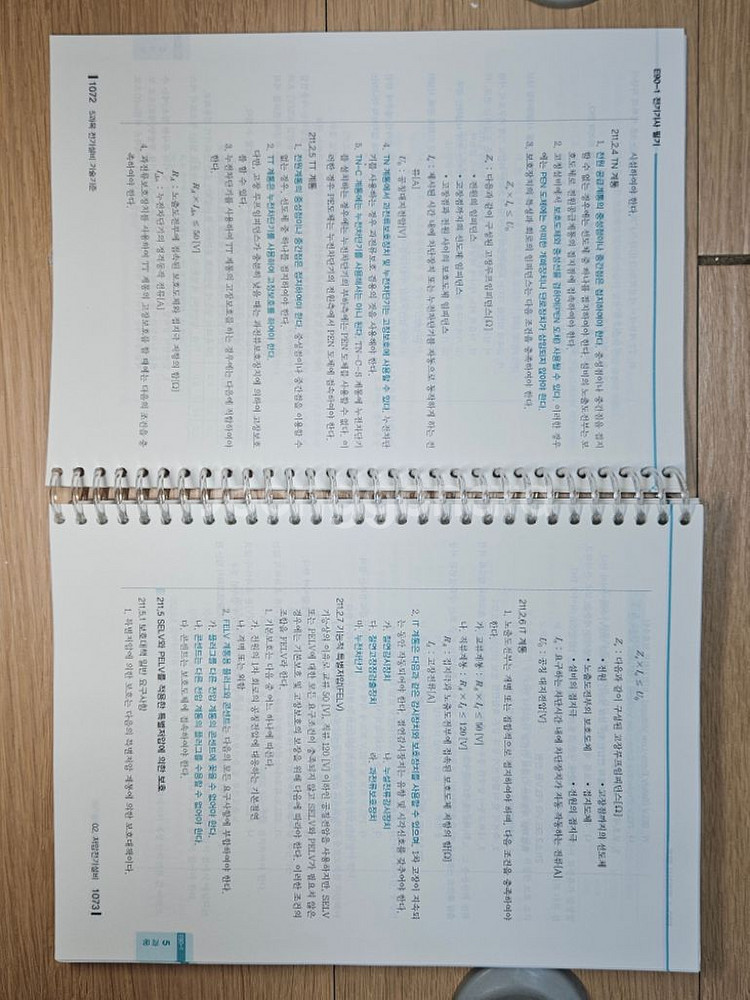 E90-1 전기기사 필기
시설하여야 한다.
211.2.4 TN 계통
1. 전원 공급계통의 중성점이나 중간점은 접지하여야 한다. 중성점이나 중간점을 접지
할 수 없는 경우에는 선도체 중 하나를 접지하여야 한다. 설비의 노출도전부는 보
호도체로 전원공급계통의 접지점에 접속하여야 한다.
2. 고정설비에서 보호도체와 중성선을 겸하여(PEN 도체) 사용할 수 있다. 이러한 경우
에는 PEN 도체에는 어떠한 개폐장치나 단로장치가 삽입되지 않아야 한다.
3. 보호장치의 특성과 회로의 임피던스는 다음 조건을 충족하여야 한다.
Zs × Ia ≤ U0
Zs : 다음과 같이 구성된 고장루프임피던스[Ω]
• 전원의 임피던스
• 고장점까지의 선도체 임피던스
• 고장점과 전원 사이의 보호도체 임피던스
Ia : 제시된 시간 내에 차단장치 또는 누전차단기를 자동으로 동작하게 하는 전
류[A]
U0 : 공칭대지전압[V]
4. TN 계통에서 과전류보호장치 및 누전차단기는 고장보호에 사용할 수 있다. 누전차단
기를 사용하는 경우 과전류보호 겸용의 것을 사용해야 한다.
5. TN-C 계통에는 누전차단기를 사용해서는 아니 된다. TN-C-S 계통에 누전차단기
를 설치하는 경우에는 누전차단기의 부하측에는 PEN 도체를 사용할 수 없다. 이
러한 경우 PE도체는 누전차단기의 전원측에서 PEN 도체에 접속하여야 한다.
211.2.5 TT 계통
1. 전원계통의 중성점이나 중간점은 접지하여야 한다. 중성점이나 중간점을 이용할 수
없는 경우, 선도체 중 하나를 접지하여야 한다.
2. TT 계통은 누전차단기를 사용하여 고장보호를 하여야 한다.
다만, 고장 루프임피던스가 충분히 낮을 때는 과전류보호장치에 의하여 고장보호
를 할 수 있다.
3. 누전차단기를 사용하여 TT 계통의 고장보호를 하는 경우에는 다음에 적합하여야
한다.
RA × I△n ≤ 50[V]
RA : 노출도전부에 접속된 보호도체와 접지극 저항의 합[Ω]
I△n : 누전차단기의 정격동작 전류[A]
4. 과전류보호장치를 사용하여 TT 계통의 고장보호를 할 때에는 다음의 조건을 충
족하여야 한다.
1072 5과목 전기설비 기술기준
Zs × Ia ≤ U0
Zs : 다음과 같이 구성된 고장루프임피던스[Ω]
• 전원 • 고장점까지의 선도체
• 노출도전부의 보호도체 • 접지도체
• 설비의 접지극 • 전원의 접지극
Ia : 요구하는 차단시간 내에 차단장치가 자동 작동하는 전류[A]
U0 : 공칭 대지전압[V]
211.2.6 IT 계통
1. 노출도전부는 개별 또는 집합적으로 접지하여야 하며, 다음 조건을 충족하여야
한다.
가. 교류계통 : RA × Id ≤ 50[V]
나. 직류계통 : RA × Id ≤ 120[V]
RA : 접지극과 노출도전부에 접속된 보호도체 저항의 합[Ω]
Id : 고장전류[A]
2. IT 계통은 다음과 같은 감시장치와 보호장치를 사용할 수 있으며, 1차 고장이 지속되
는 동안 작동되어야 한다. 절연감시장치는 음향 및 시각신호를 갖추어야 한다.
가. 절연감시장치 나. 누설전류감시장치
다. 절연고장점검출장치 라. 과전류보호장치
마. 누전차단기
211.2.7 기능적 특별저압(FELV)
기능상의 이유로 교류 50[V], 직류 120[V] 이하인 공칭전압을 사용하지만, SELV
또는 PELV에 대한 모든 요구조건이 충족되지 않고 SELV와 PELV가 필요치 않은
경우에는 기본보호 및 고장보호의 보장을 위해 다음에 따라야 한다. 이러한 조건의
조합을 FELV라 한다.
1. 기본보호는 다음 중 어느 하나에 따른다.
가. 전원의 1차 회로의 공칭전압에 대응하는 기본절연
나. 격벽 또는 외함
2. FELV 계통용 플러그와 콘센트는 다음의 모든 요구사항에 부합하여야 한다.
가. 플러그를 다른 전압 계통의 콘센트에 꽂을 수 없어야 한다.
나. 콘센트는 다른 전압 계통의 플러그를 수용할 수 없어야 한다.
다. 콘센트는 보호도체에 접속하여야 한다.
211.5 SELV와 PELV를 적용한 특별저압에 의한 보호
211.5.1 보호대책 일반 요구사항
1. 특별저압에 의한 보호는 다음의 특별저압 계통에 의한 보호대책이다.
02. 저압전기설비 1073
5
과목